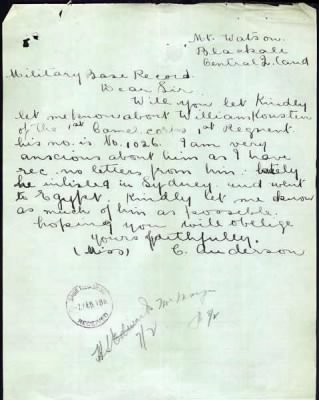 Mt. Watson
Blackall
Central Q. Land
Military Base Record
Dear Sir
Will you let Kindly
let me know about William
of the 1st Camel corps 1st Regment
his no. is No. 1026. I am very
anscious about him as I have
rec no letters from him. lately
he inlisted in Sydney and went
to Egypt. Kindly let me know
as much of him as possible.
hoping you will oblige
yours faithfully.
(Miss) C. Anderson
RECORDS